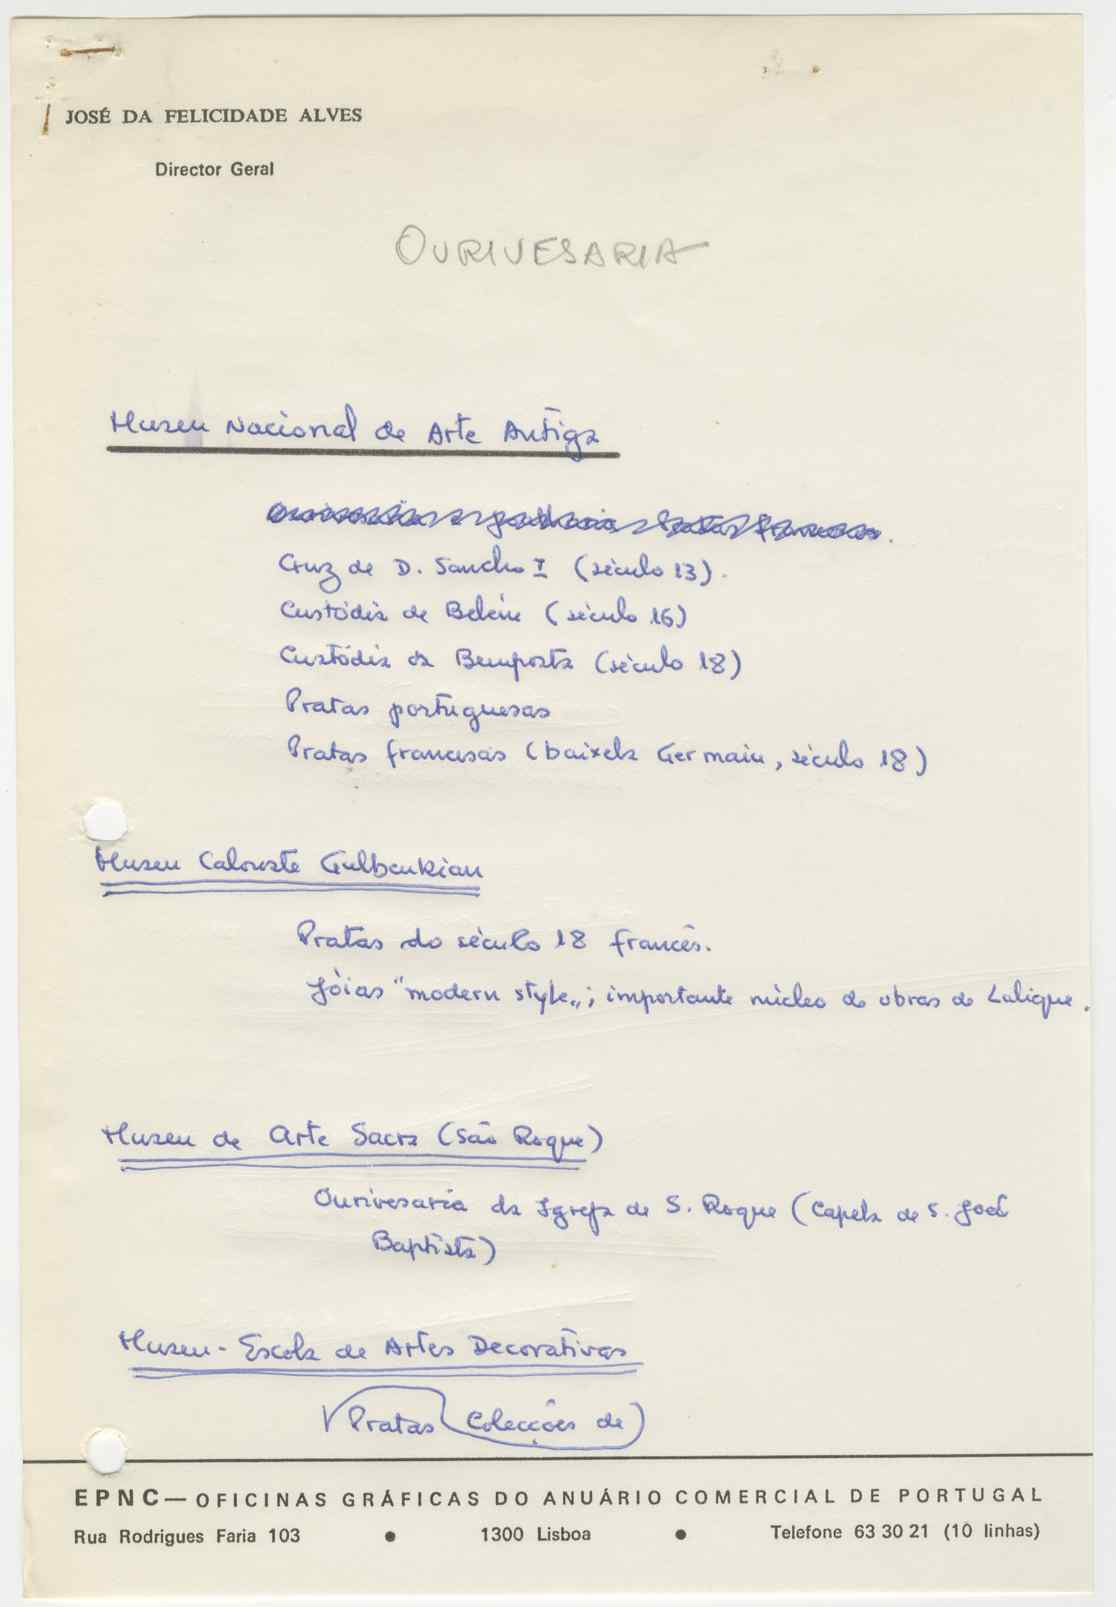 JOSÉ DA FELICIDADE ALVES
Director Geral
OURIVESARIA
Museu Nacional de Arte Antiga
Cruz de D. Sancho I (século 13).
Custódia de Belém (século 16)
Custódia da Bemposta (século 18)
Pratas portuguesas
Pratas francesas (baixela Germain, século 18)
Museu Calouste Gulbenkian
Pratas do século 18 francês.
Jóias "modern style"; importante núcleo de obras de Lalique.
Museu de Arte Sacra (São Roque)
Ourivesaria da Igreja de S. Roque (Capela de S. João
Baptista)
Museu-Escola de Artes Decorativas
Pratas (Colecções de)
EPNC — OFICINAS GRÁFICAS DO ANUÁRIO COMERCIAL DE PORTUGAL
Rua Rodrigues Faria 103 • 1300 Lisboa • Telefone 63 30 21 (10 linhas)